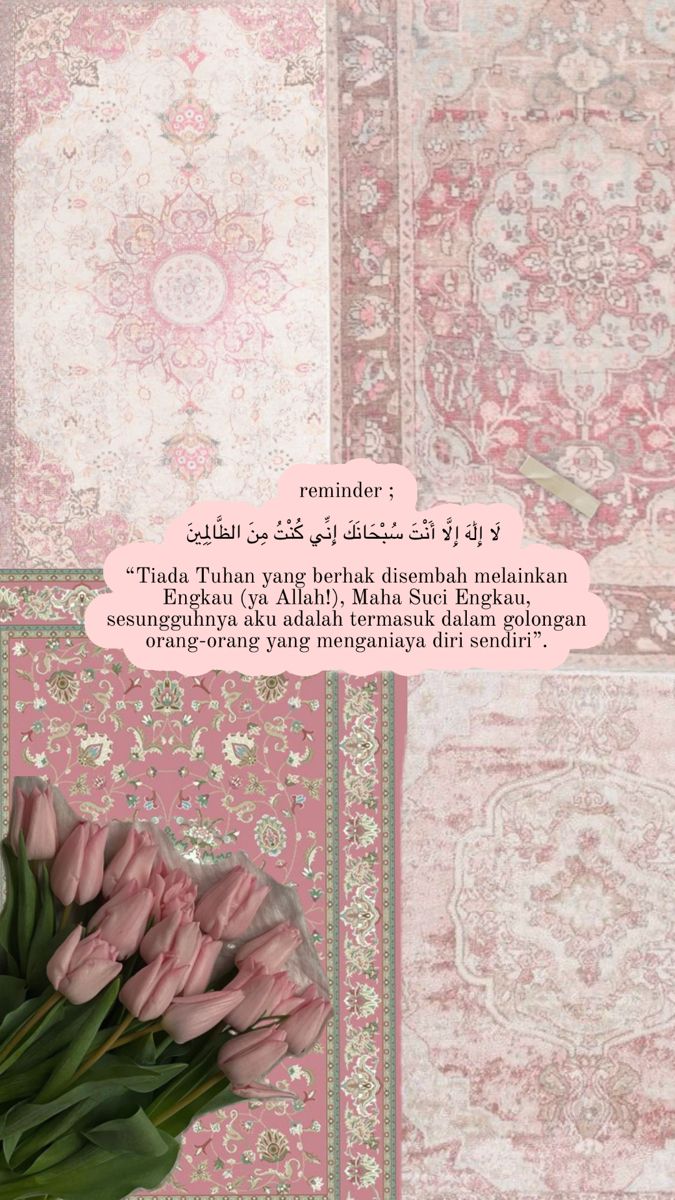 reminder ;
لَا إِلَٰهَ إِلَّا أَنْتَ سُبْحَانَكَ إِنِّي كُنْتُ مِنَ الظَّالِمِينَ
“Tiada Tuhan yang berhak disembah melainkan
Engkau (ya Allah!), Maha Suci Engkau,
sesungguhnya aku adalah termasuk dalam golongan
orang-orang yang menganiaya diri sendiri”.